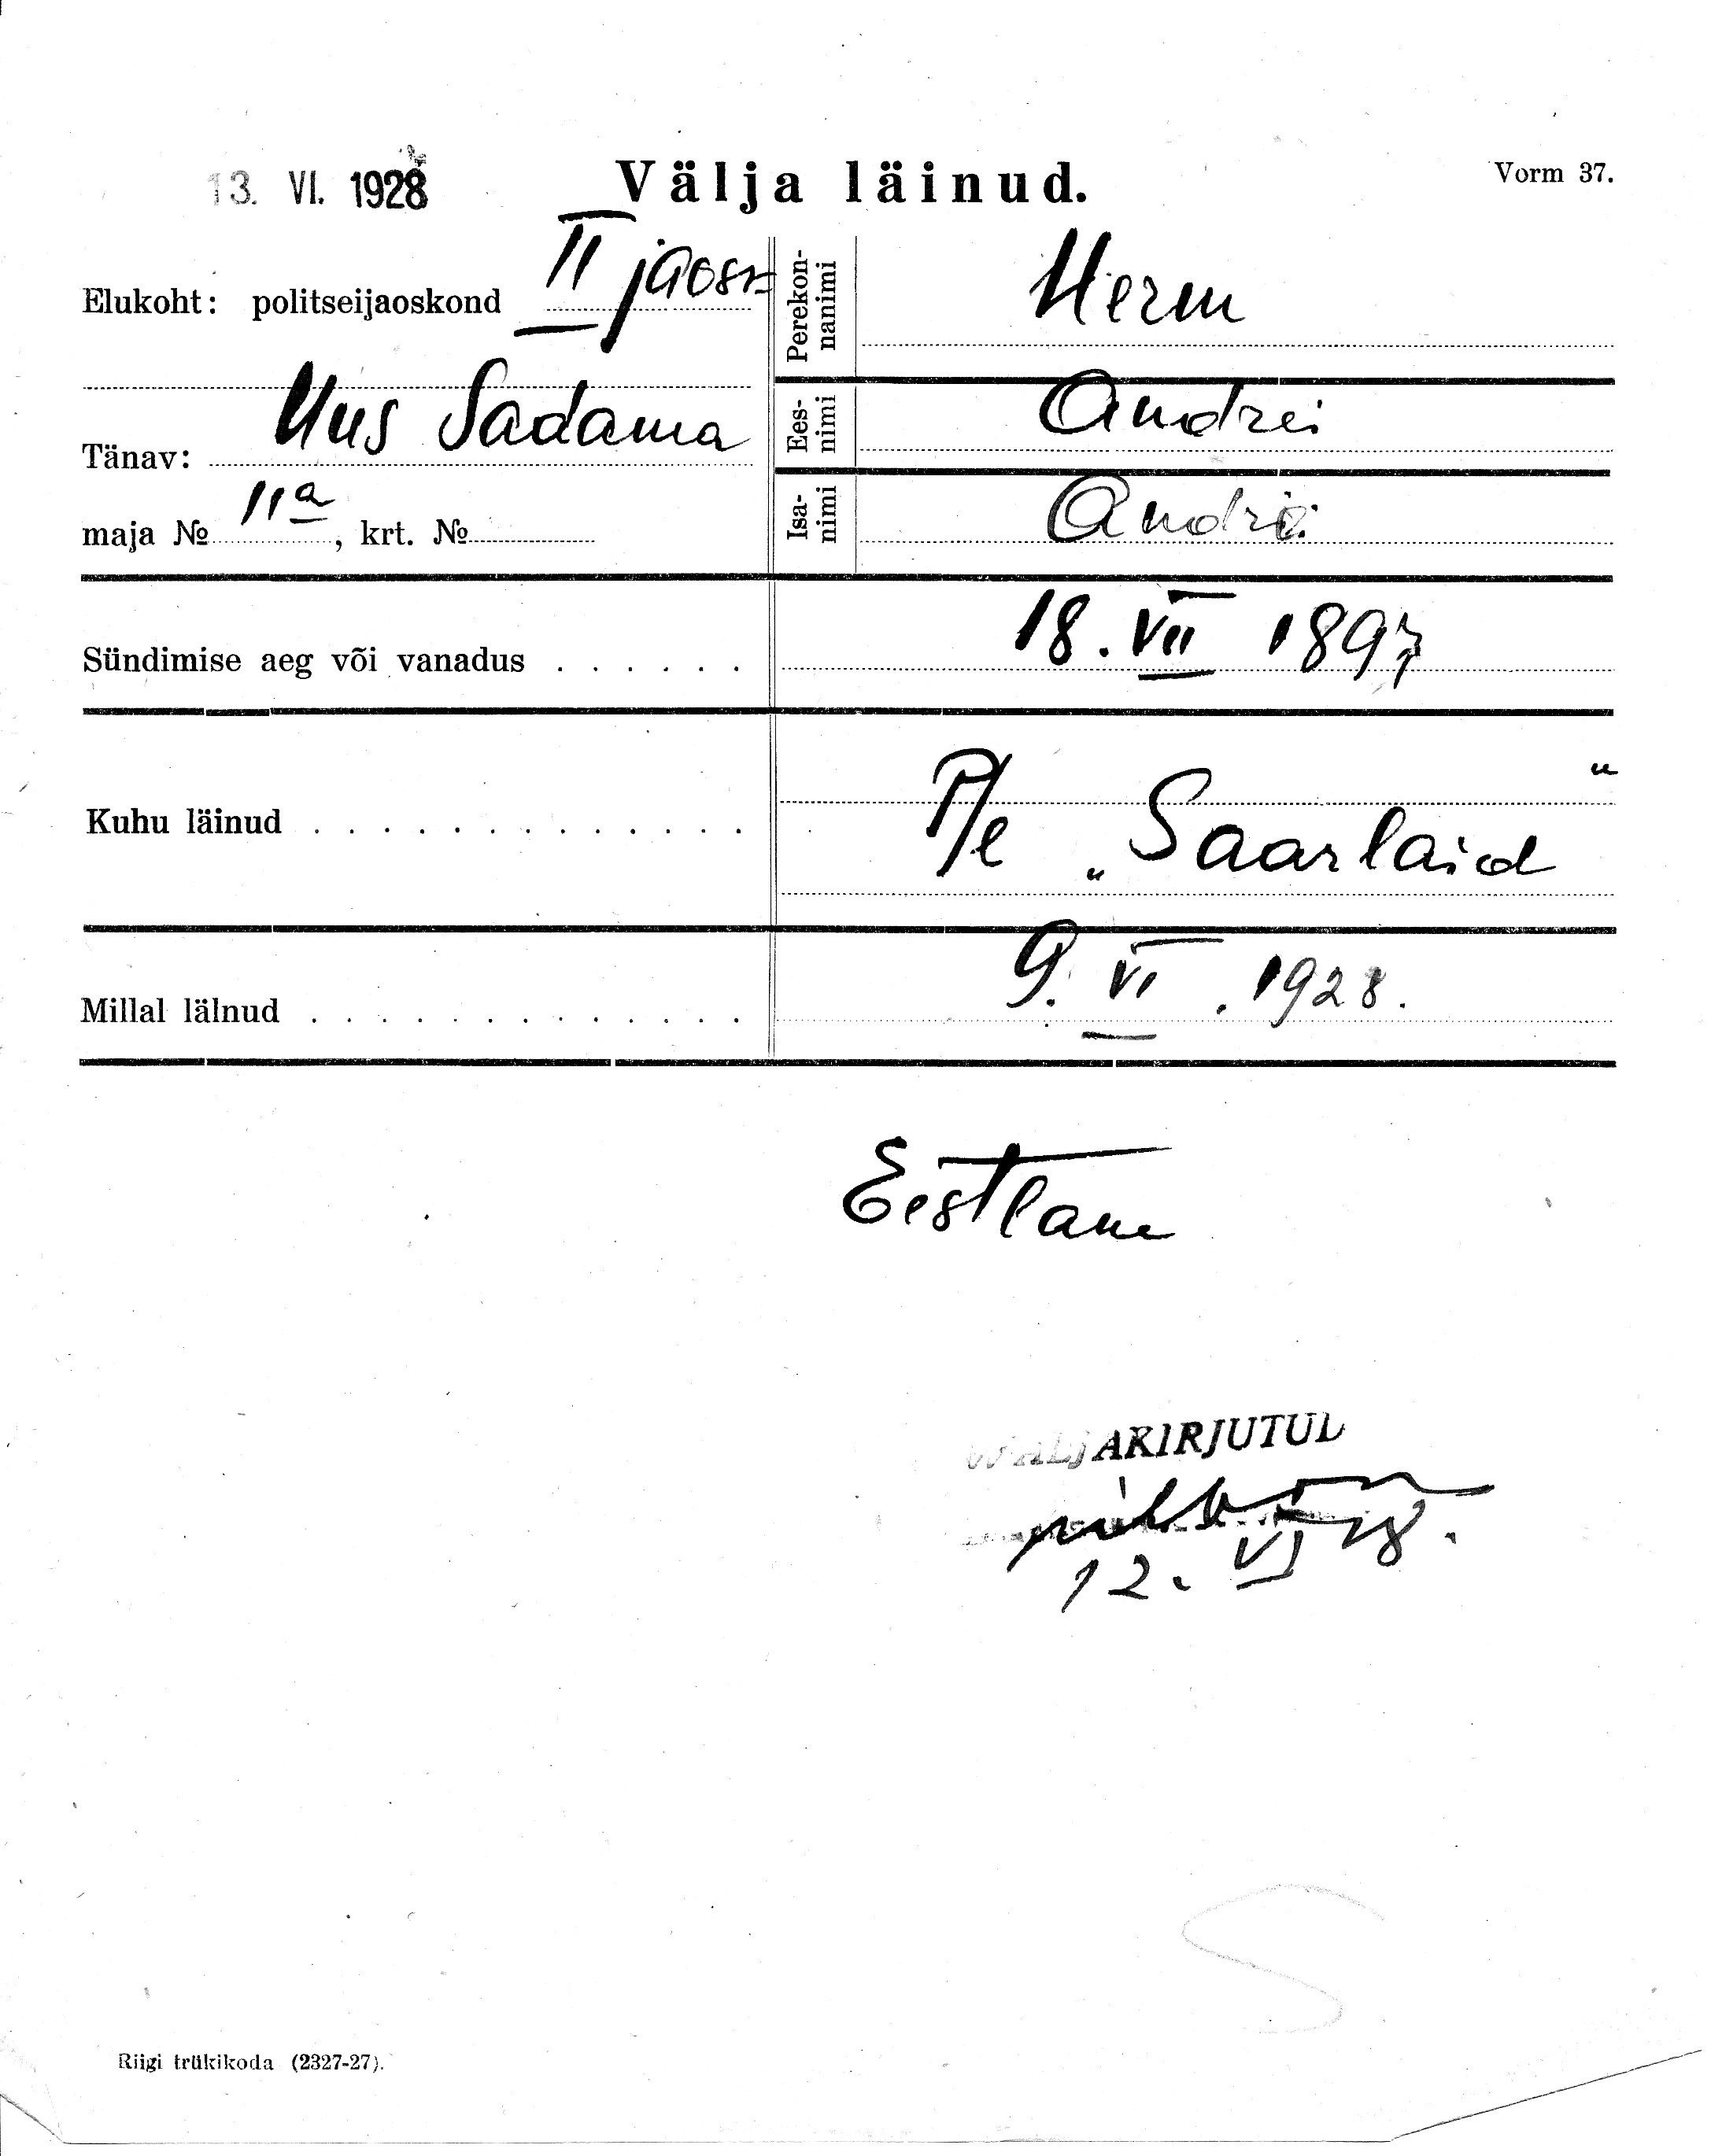 13. VI. 1928
Välja läinud.
Vorm 37.
Elukoht: politseijaoskond II jaosk
Tänav: Uus Sadama
maja № 11a, krt. №
Perekon-
nanimi
Herm
Ees-
nimi
Andrei
Isa-
nimi
Andrei
Sündimise aeg või vanadus . . . . . . 18. VII 1897
Kuhu läinud . . . . . . . . . . . . . P/l „Saarlaid“
Millal läinud . . . . . . . . . . . . . 9. VI. 1928.
Eestlane
WÄLJAKIRJUTUD
12. VI 28.
S
Riigi trükikoda (2327-27).